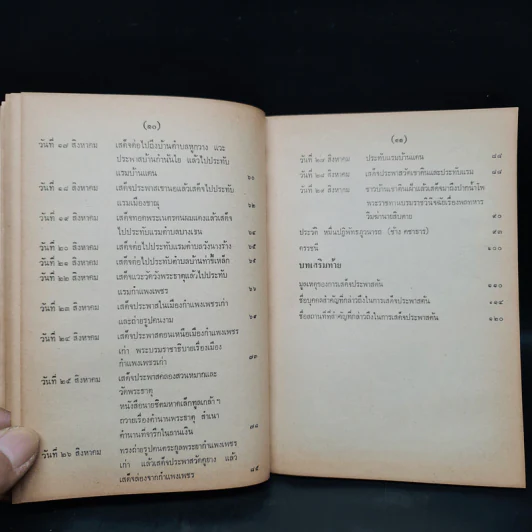 (๑๐)
วันที่ ๑๗ สิงหาคม เสด็จต่อไปถึงบ้านตำบลหูกวาง แวะ
ประพาสบ้านกำนันไย แล้วไปประทับ
แรมบ้านแดน ๖๑
วันที่ ๑๘ สิงหาคม เสด็จประพาสเขานอแล้วเสด็จไปประทับ
แรมเมืองขาณุ ๖๒
วันที่ ๑๙ สิงหาคม เสด็จทอดพระเนตรถนนแดงแล้วเสด็จ
ไปประทับแรมตำบลบางแขม ๖๔
วันที่ ๒๐ สิงหาคม เสด็จต่อไปประทับแรมตำบลวังนางร้าง ๖๕
วันที่ ๒๑ สิงหาคม เสด็จต่อไปประทับตำบลบ้านท่าขี้เหล็ก ๖๕
วันที่ ๒๒ สิงหาคม เสด็จแวะวัดวังพระธาตุแล้วไปประทับ
แรมกำแพงเพชร ๖๖
วันที่ ๒๓ สิงหาคม เสด็จประพาสในเมืองกำแพงเพชรเก่า
และถ่ายรูปคนงาม ๖๘
วันที่ ๒๔ สิงหาคม เสด็จประพาสตอนเหนือเมืองกำแพงเพชร
เก่า พระบรมราชาธิบายเรื่องเมือง
กำแพงเพชรเก่า ๗๓
วันที่ ๒๕ สิงหาคม เสด็จประพาสคลองสวนหมากและ
วัดพระธาตุ
หนังสือนายชิดมหาดเล็กทูลเกล้า ฯ
ถวายเรื่องตำนานพระธาตุ สำเนา
ตำนานที่จารึกในลานเงิน ๗๘
วันที่ ๒๖ สิงหาคม ทรงถ่ายรูปคนตระกูลพระยากำแพงเพชร
เก่า แล้วเสด็จประพาสวัดคูยาง แล้ว
เสด็จล่องจากกำแพงเพชร ๘๕
(๑๑)
วันที่ ๒๗ สิงหาคม ประทับแรมบ้านแดน ๘๘
วันที่ ๒๘ สิงหาคม เสด็จประพาสวัดเขาดินและประทับแรม ๘๘
วันที่ ๒๙ สิงหาคม ชาวบ้านเขาดินเฝ้าแล้วเสด็จมาถึงปากน้ำโพ
พระราชทานบรมราชวินิจฉัยเรื่องพลทหาร
วิมาน่านายสิบตาย ๙๐
ประวัติ หมื่นปฏิพัทธภูวนารถ (ช้าง คชาธาร) ๙๗
ดรรชนี ๑๐๐
บทเสริมท้าย
มูลเหตุของการเสด็จประพาสต้น ๑๑๐
ชื่อบุคคลสำคัญที่กล่าวถึงในการเสด็จประพาสต้น ๑๑๔
ชื่อสถานที่ที่สำคัญที่กล่าวถึงในการเสด็จประพาสต้น ๑๒๐